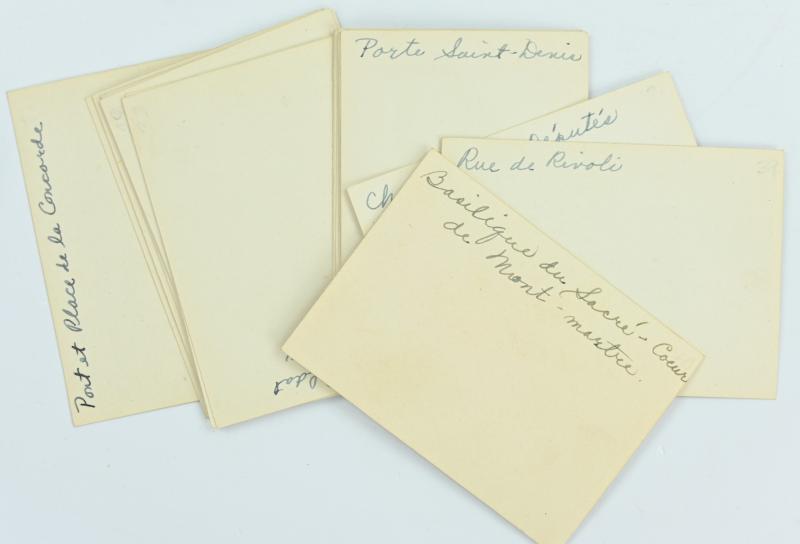 Pont et Place de la Concorde
Porte Saint-Denis
Députés
Rue de Rivoli
Basilique du Sacré-Coeur
de Mont-martre.